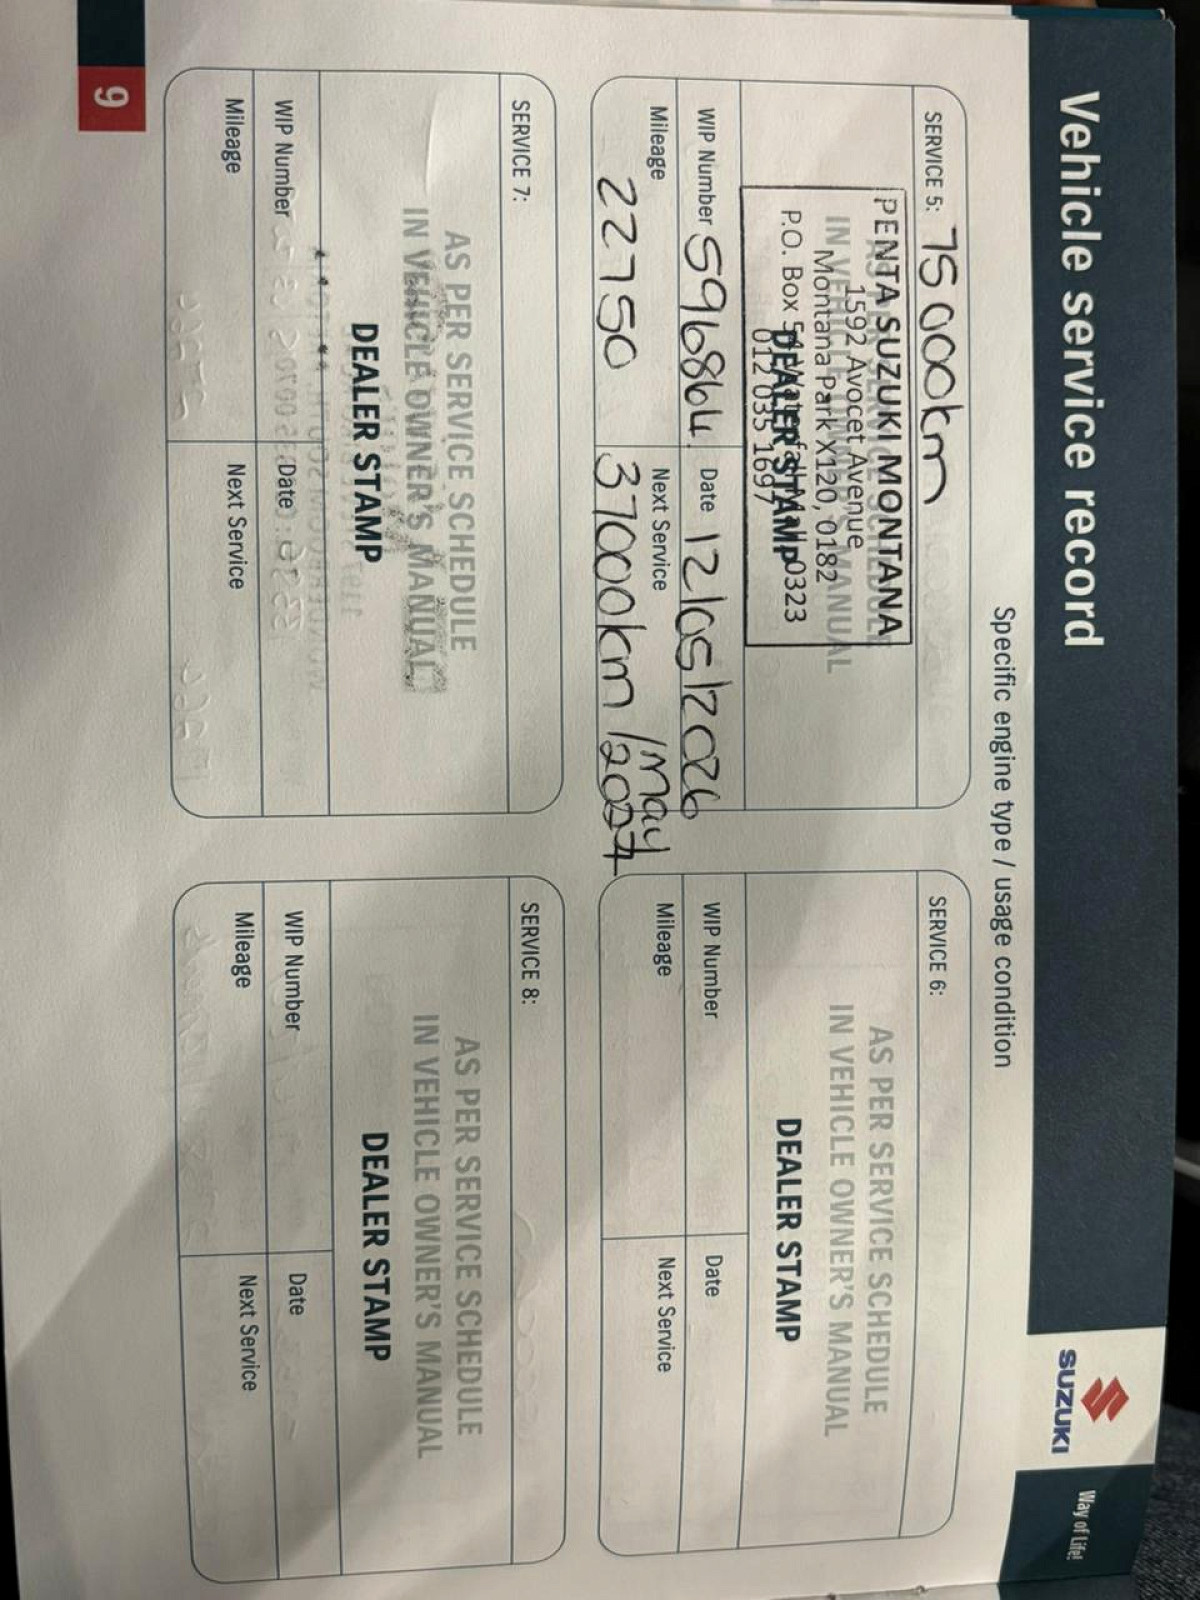 Vehicle service record
SUZUKI
Way of Life!
Specific engine type / usage condition
SERVICE 5: 75000km
AS PER SERVICE SCHEDULE
IN VEHICLE OWNER'S MANUAL
DEALER STAMP
PENTA SUZUKI MONTANA
1592 Avocet Avenue
Montana Park X120, 0182
P.O. Box 54 Waterfall Mall 0323
012 035 1697
WIP Number 596864. Date 12/05/2026
Mileage 22750 Next Service 37000km /May /2027
SERVICE 6:
AS PER SERVICE SCHEDULE
IN VEHICLE OWNER'S MANUAL
DEALER STAMP
WIP Number Date
Mileage Next Service
SERVICE 7:
AS PER SERVICE SCHEDULE
IN VEHICLE OWNER'S MANUAL
DEALER STAMP
WIP Number Date
Mileage Next Service
SERVICE 8:
AS PER SERVICE SCHEDULE
IN VEHICLE OWNER'S MANUAL
DEALER STAMP
WIP Number Date
Mileage Next Service
9